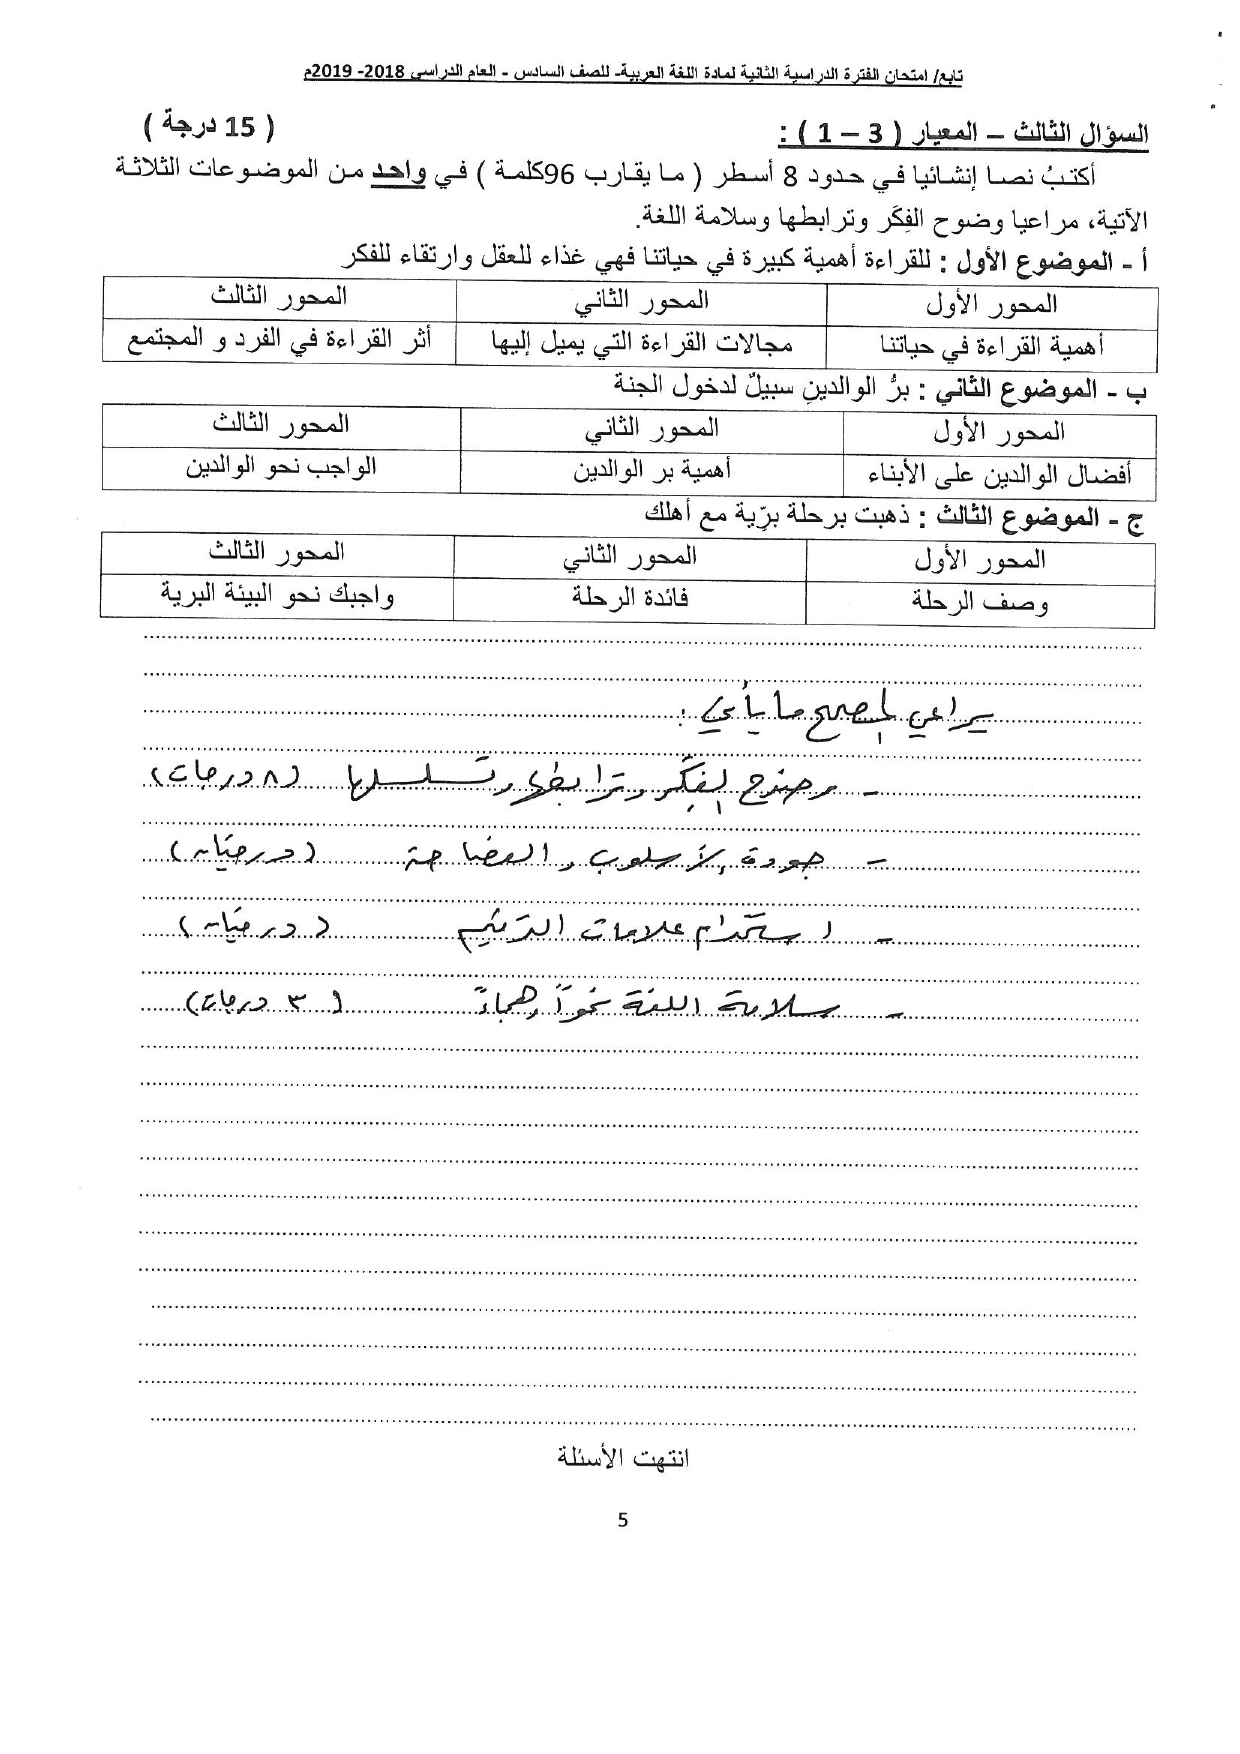 تابع/ امتحان الفترة الدراسية الثانية لمادة اللغة العربية- للصف السادس - العام الدراسي 2018- 2019م
السؤال الثالث – المعيار ( 3 – 1 ) : ( 15 درجة )
أكتبُ نصا إنشائيا في حدود 8 أسطر ( ما يقارب 96كلمة ) في واحد من الموضوعات الثلاثة
الآتية، مراعيا وضوح الفِكَر وترابطها وسلامة اللغة.
أ - الموضوع الأول : للقراءة أهمية كبيرة في حياتنا فهي غذاء للعقل وارتقاء للفكر
المحور الأول المحور الثاني المحور الثالث
أهمية القراءة في حياتنا مجالات القراءة التي يميل إليها أثر القراءة في الفرد و المجتمع
ب - الموضوع الثاني : برُّ الوالدينِ سبيلٌ لدخول الجنة
المحور الأول المحور الثاني المحور الثالث
أفضال الوالدين على الأبناء أهمية بر الوالدين الواجب نحو الوالدين
ج - الموضوع الثالث : ذهبت برحلة برّية مع أهلك
المحور الأول المحور الثاني المحور الثالث
وصف الرحلة فائدة الرحلة واجبك نحو البيئة البرية
يراعي المصحح ما يأتي :
- وضوح الفِكَر وترابطها وتسلسلها (٨ درجات)
- جودة الأسلوب والفصاحة (درجتان)
- استخدام علامات الترقيم (درجتان)
- سلامة اللغة نحوًا وهجاءً (٣ درجات)
انتهت الأسئلة
5